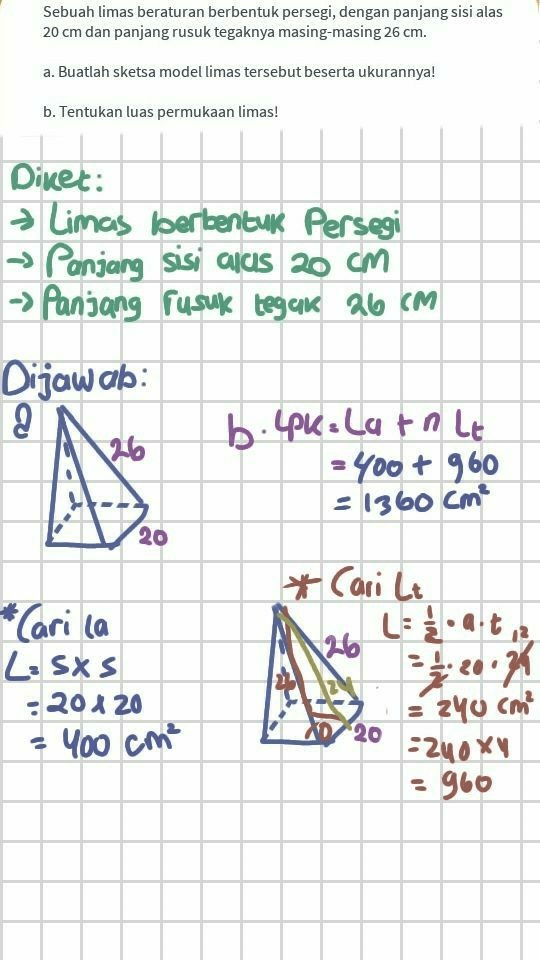 Sebuah limas beraturan berbentuk persegi, dengan panjang sisi alas
20 cm dan panjang rusuk tegaknya masing-masing 26 cm.
a. Buatlah sketsa model limas tersebut beserta ukurannya!
b. Tentukan luas permukaan limas!
Diket:
→ Limas berbentuk Persegi
→ Panjang sisi alas 20 CM
→ Panjang rusuk tegak 26 CM
Dijawab:
a
26
20
b. Lpk = La + n Lt
= 400 + 960
= 1360 cm²
* Cari La
L = s x s
= 20 x 20
= 400 cm²
26
26
24
10
20
* Cari Lt
L = 1/2 · a · t
12
= 1/2 · 20 · 24
= 240 cm²
= 240 x 4
= 960